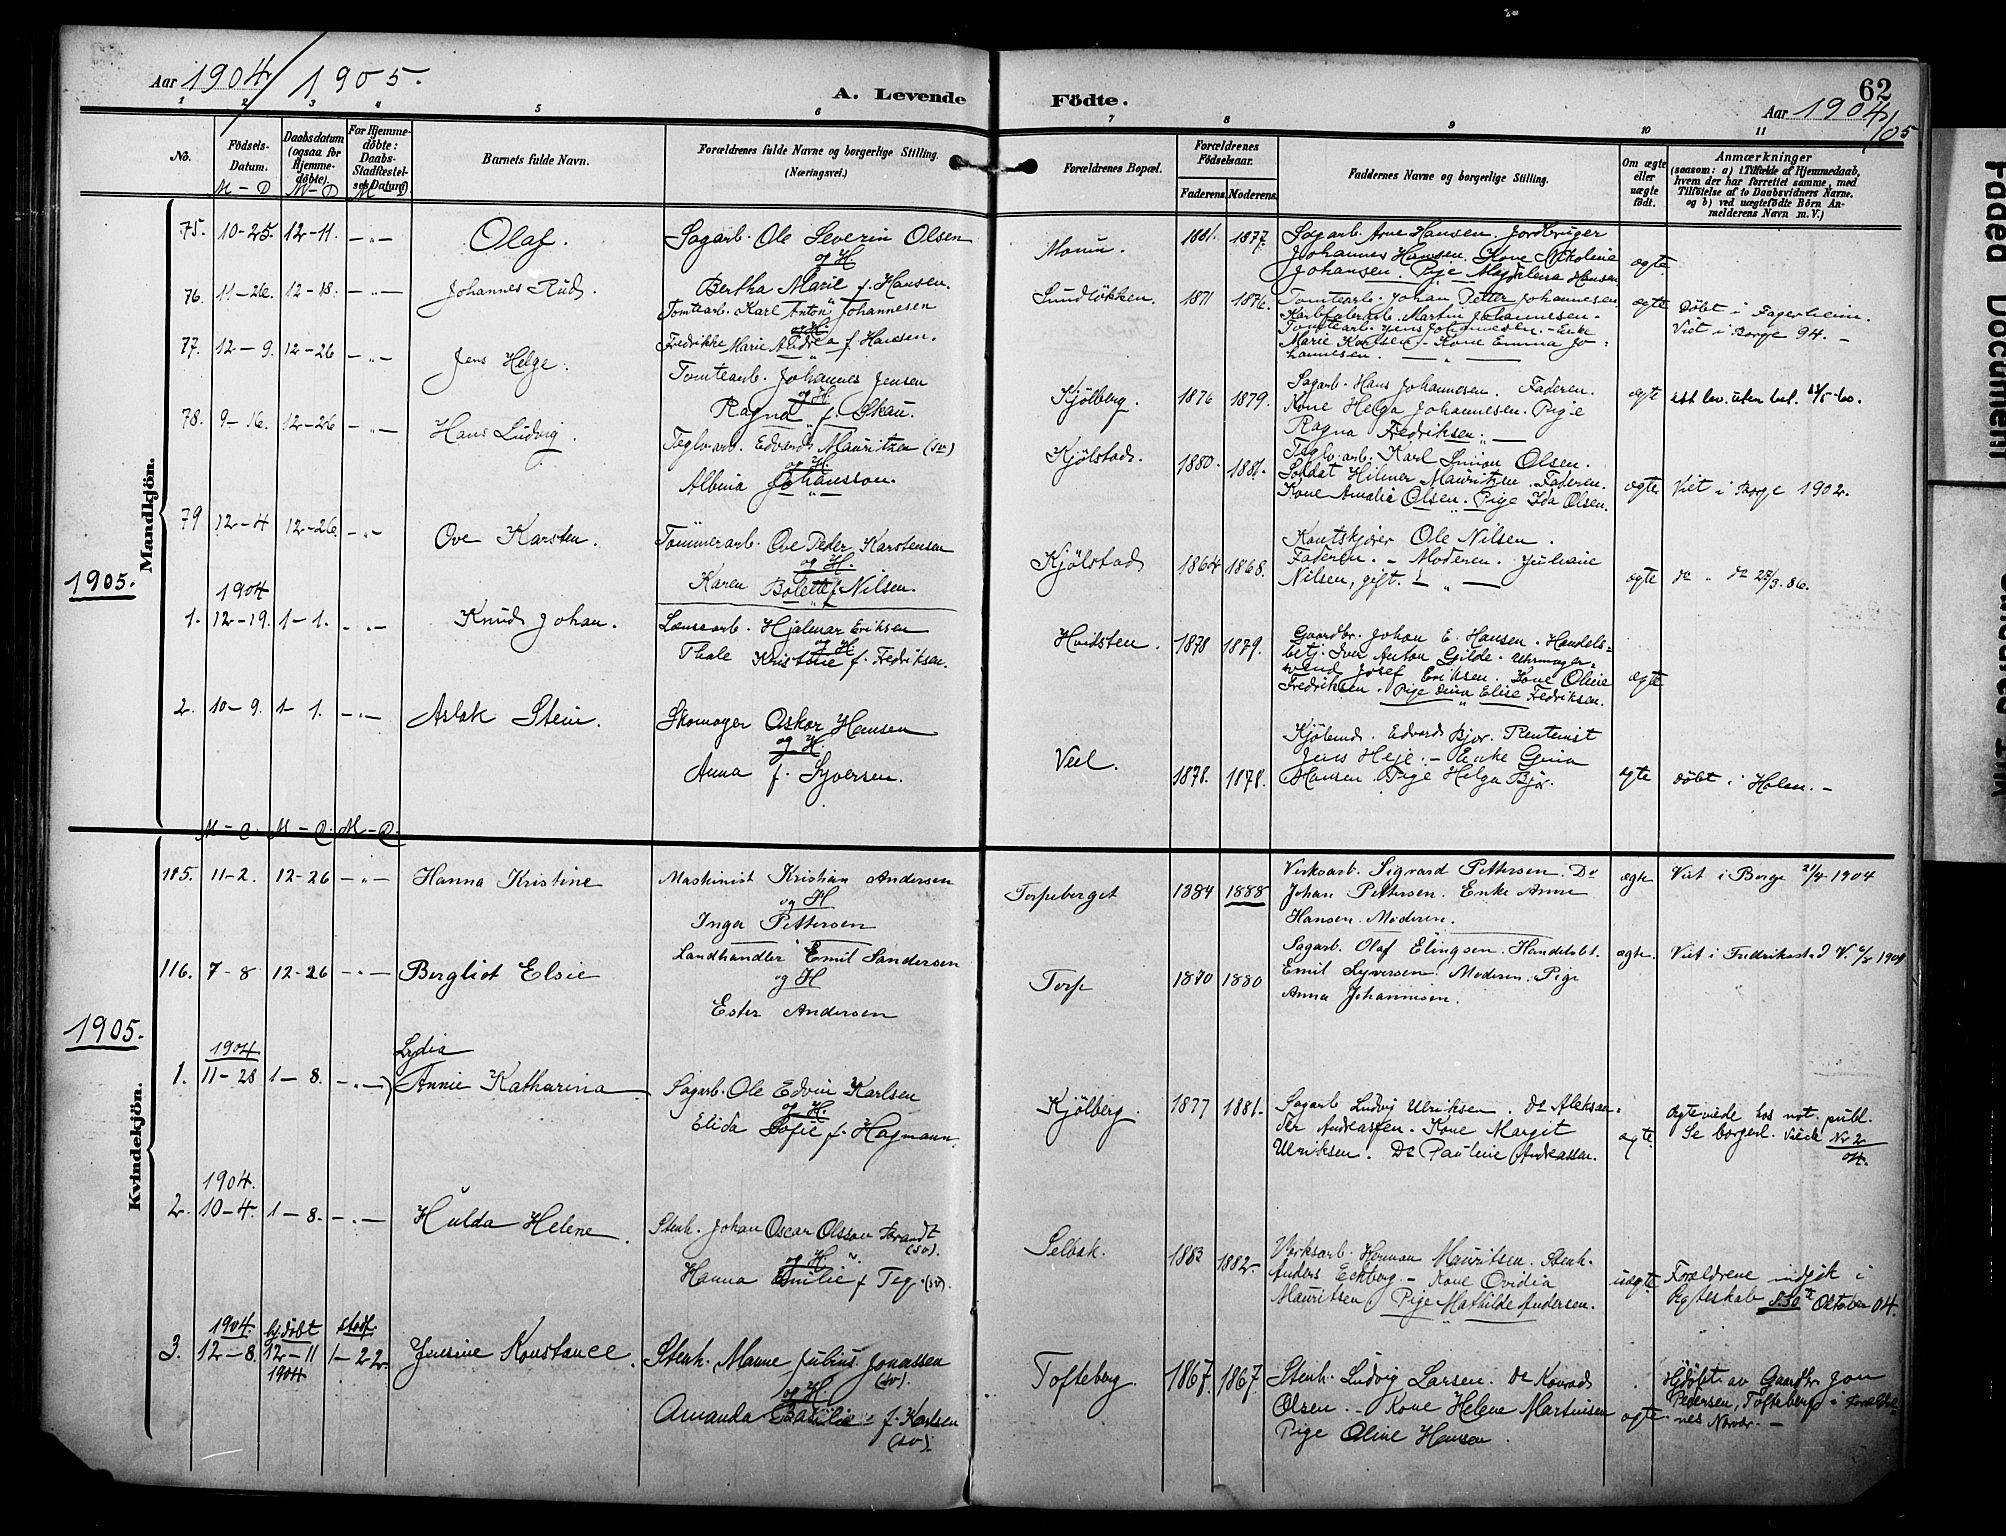 Aar 1904/1905.
A. Levende Födte.
62
Aar 1904/05
1 2 3 4 5 6 7 8 9 10 11
No.
Födsels-
Datum.
M – D
Daabsdatum
(ogsaa for
Hjemme-
döbte).
M – D
For Hjemme-
döbte:
Daabs-
Stadfæstel-
ses Datum
M D
Barnets fulde Navn.
Forældrenes fulde Navne og borgerlige Stilling.
(Næringsvei.)
Forældrenes Bopæl.
Forældrenes
Födselsaar.
Faderens. Moderens.
Faddernes Navne og borgerlige Stilling.
Om ægte
eller
uægte
födt.
Anmærkninger
(saasom: a) i Tilfælde af Hjemmedaab,
hvem der har forrettet samme, med
Tilföielse af to Daabsvidners Navne.
og b) ved uægtefödte Börn An-
melderens Navn m. V.)
Mandkjön.
75. 10-25. 12-11. — „ — Olaf. Sagarb. Ole Severin Olsen
og H
Bertha Marie f. Hansen.
1881. 1877.
Sagarb. Arne Hansen. Jordbruger
Johannes Hansen. Kone Nikoline
Johansen. Pige Magdalena Hansen
ægte
76. 11-26. 12-18. — „ — Johannes Rud.
Tomtearb. Karl Anton Johannesen
og H.
Fredrikke Marie Andrea f. Hansen.
Sundløkken. 1871 1876.
Tomtearb. Johan Petter Johannesen.
Martin Johannesen -
Tomtearb. Jens Johannesen. - Enke
Marie Karlsen - Kone Emma Jo-
hannesen. — „ —
ægte
Döbt i Fagerheim.
Viet i Borge 94. –
77. 12-9. 12-26 — „ — Jens Helge.
Tomtearb. Johannes Jensen
og H.
Ragna f. Skau.
Kjølberg. 1876 1879.
Sagarb. Hans Johannesen. Faderen.
Kone Helga Johannesen. Pige
Ragna Fredriksen. —
ægte
78. 9-16. 12-26 — „ — Hans Ludvig.
Teglv.arb. Edvard Mauritzen (sv)
og H.
Albina Johansson.
Kjølstad. 1880. 1881.
Teglv.arb. Karl Simon Olsen.
Soldat Hilmer Mauritzen. Faderen.
Kone Amalie Olsen. Pige Ida Olsen.
ægte Viet i Borge 1902.
79 12-4 12-26. — „ — Ove Karsten.
Tömmerarb. Ove Peder Karstensen
og H.
Karen Bolette f. Nilsen.
Kjølstad 1864 1868.
Ole Nilsen.
Faderen. - Moderen. Juliane
Nilsen, gift. — „ —
ægte do „ do 27/3. 86.
1905.
1904
1. 12-19. 1-1. — „ — Knud Johan.
Lænsearb. Hjalmar Eriksen
og H
Thale Kristine f. Fredriksen.
Hvidsten. 1878 1879.
Gaardbr. Johan E. Hansen. Handels-
betj. Iver Anton Gilde. Uhrmager-
svend Josef Eriksen. Kone Oline
Fredriksen. Pige Dina Elise Fredriksen.
ægte
2. 10-9. 1-1. — „ — Aslak Stein.
Skomager Oskar Hansen
og H.
Anna f. Syversen.
Veel. 1878. 1878.
Edvard Bjør. Rentenist
Jens Heje. - Enke Gina
Hansen. Pige Helga Bjør.
ægte döbt i Holen. –
M – D. M – D. M – D.
Kvindekjön.
115. 11-2. 12-26 — „ — Hanna Kristine
Maskinist Kristian Andersen
og H
Inga Pettersen
Torpeberget 1884 1888
Verksarb. Sigvard Pettersen. Do
Johan Pettersen. Enke Anne
Hansen. Moderen.
ægte Viet i Borge 21/4 1904
116. 7-8 12-26 — „ — Bergliot Elsie
Landhandler Emil Sandersen
og H
Ester Andersen
Torp 1870 1880
Sagarb. Olaf Elingsen. Handelsbt.
Emil Syversen. Moderen. Pige
Anna Johannesen.
ægte. Viet i Fredrikstad
1905.
1904
Lydia
1. 11-28 1-8. — „ — Annie Katharina
Sagarb. Ole Edvin Karlsen
og H.
Elida Sofie f. Hagmann.
Kjølberg. 1877 1881.
Sagarb Ludvig Ulriksen. Do Aleksan-
der Andreassen. Kone Margit
Ulriksen. Do Pauline Andreassen.
ægte.
Ægteviede hos not. publ.
Se borgerl. viede No 2
04.
1904.
2. 10-4. 1-8. — „ — Hulda Helene.
Stenh. Johan Oscar Olsson Brandt
(sv).
og H.
Hanna Emilie f Teg. (sv).
Selbak. 1883 1882.
Verksarb. Herman Mauritsen. Stenh.
Anders Eckberg. - Kone Ovidia
Mauritsen. Pige Mathilde Andersen.
uægte
Forældrene indgik i
Ægteskab d. 30te Oktober 04.
1904. hj.döbt stadf.
3. 12-8. 12-11 1-22. Jensine Konstance.
1904
Stenh. Manne Julius Jonassen
(sv).
og H.
Amanda Basilie f. Karlsen
(sv).
Tofteberg. 1867. 1867.
Stenh. Ludvig Larsen. Do Konrad
Olsen. - Kone Helene Martinsen
Pige Oline Hansen.
ægte
Hjdöbt av Gaardbr. Jon
Pedersen, Tofteberg i Forældre-
nes Nærvær. –
Faded Document